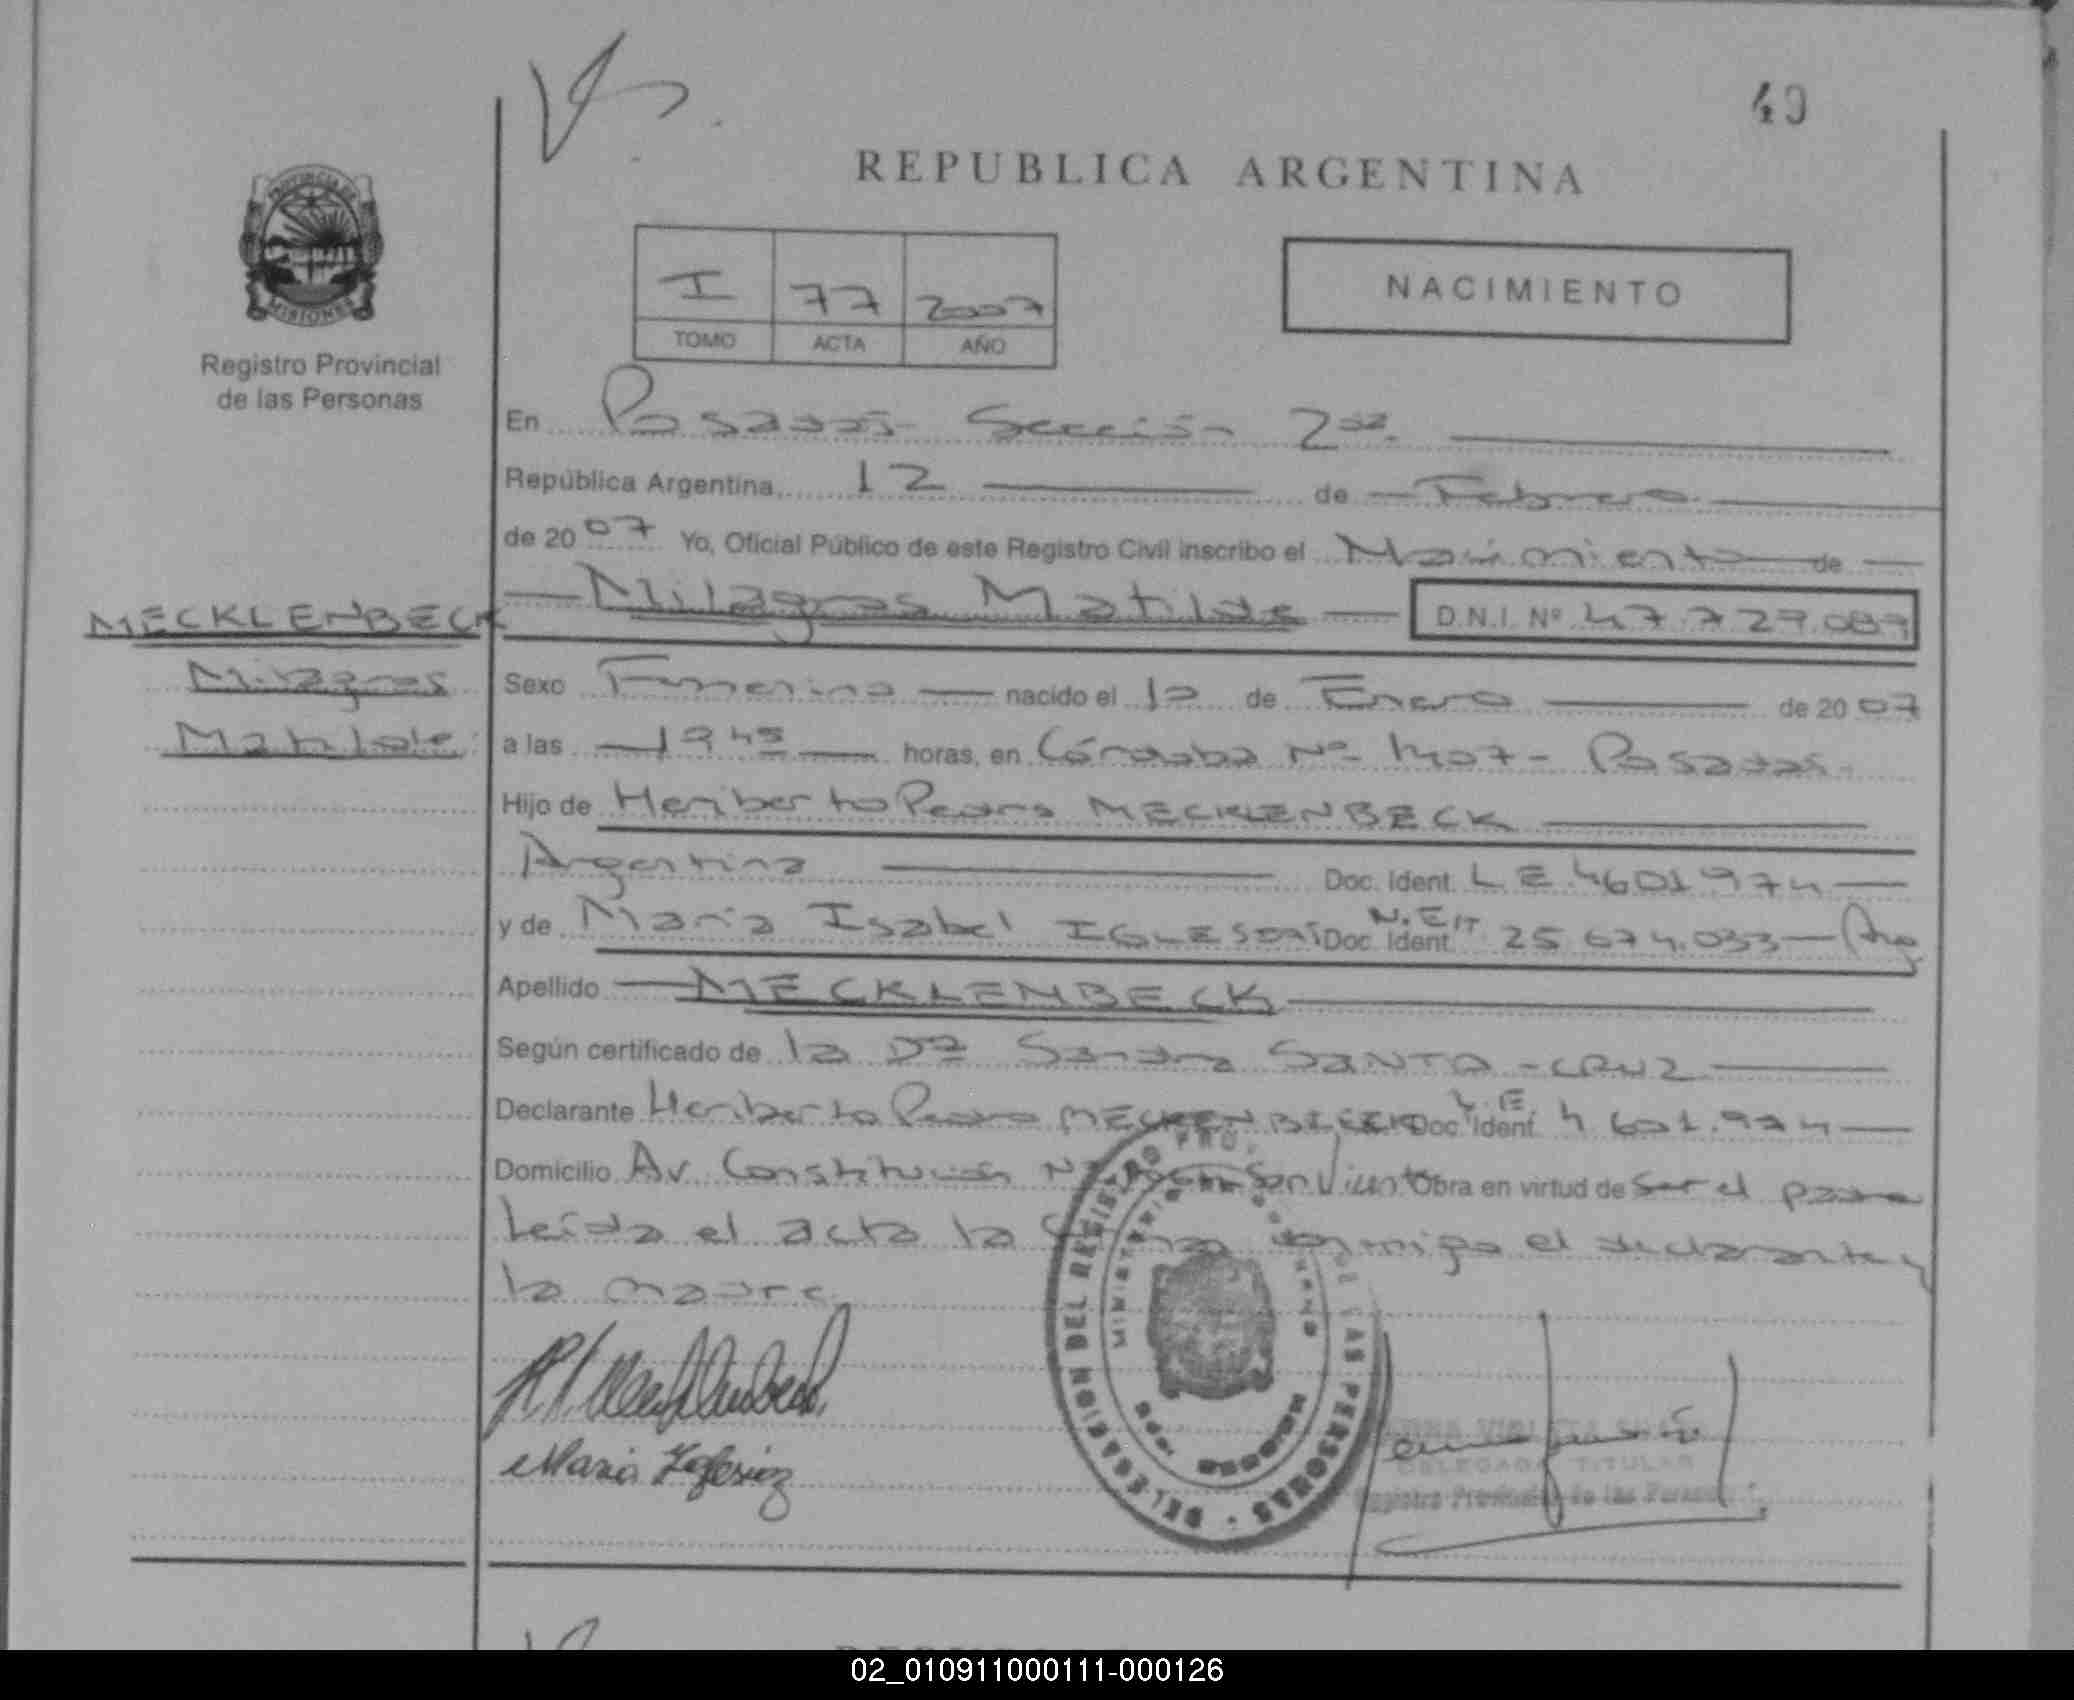 49
REPUBLICA ARGENTINA
PROVINCIA DE
MISIONES
Registro Provincial
de las Personas
I 77 2007
TOMO ACTA AÑO
NACIMIENTO
En Posadas Sección 2da.
República Argentina, 12 de Febrero
de 2007 Yo, Oficial Público de este Registro Civil inscribo el Nacimiento de
Milagros Matilde D.N.I. Nº 47.727.089
MECKLENBECK
Milagros
Matilde
Sexo Femenino nacido el 10 de Enero de 2007
a las 19 45 horas, en Córdoba Nº 1407 - Posadas.
Hijo de Heriberto Pedro MECKLENBECK
Argentina Doc. Ident. L E 4601974
y de María Isabel Doc. Ident. 25 674.033 Arg
Apellido MECKLENBECK
Según certificado de la Dra Sandra SANTA-CRUZ
Declarante Heriberto Pedro MECKLENBECK Doc. Ident. L.E. 4 601.974
Domicilio Av. Constitución San Vicente Obra en virtud de ser el padre
Leída el acta la firma conmigo el declarante y
la madre.
DELEGACION DEL REGISTRO PRO. DE LAS PERSONAS
MINISTERIO DE GOBIERNO
Maria Iglesias
DELEGADA TITULAR
Registro Provincial de las Personas
02_010911000111-000126